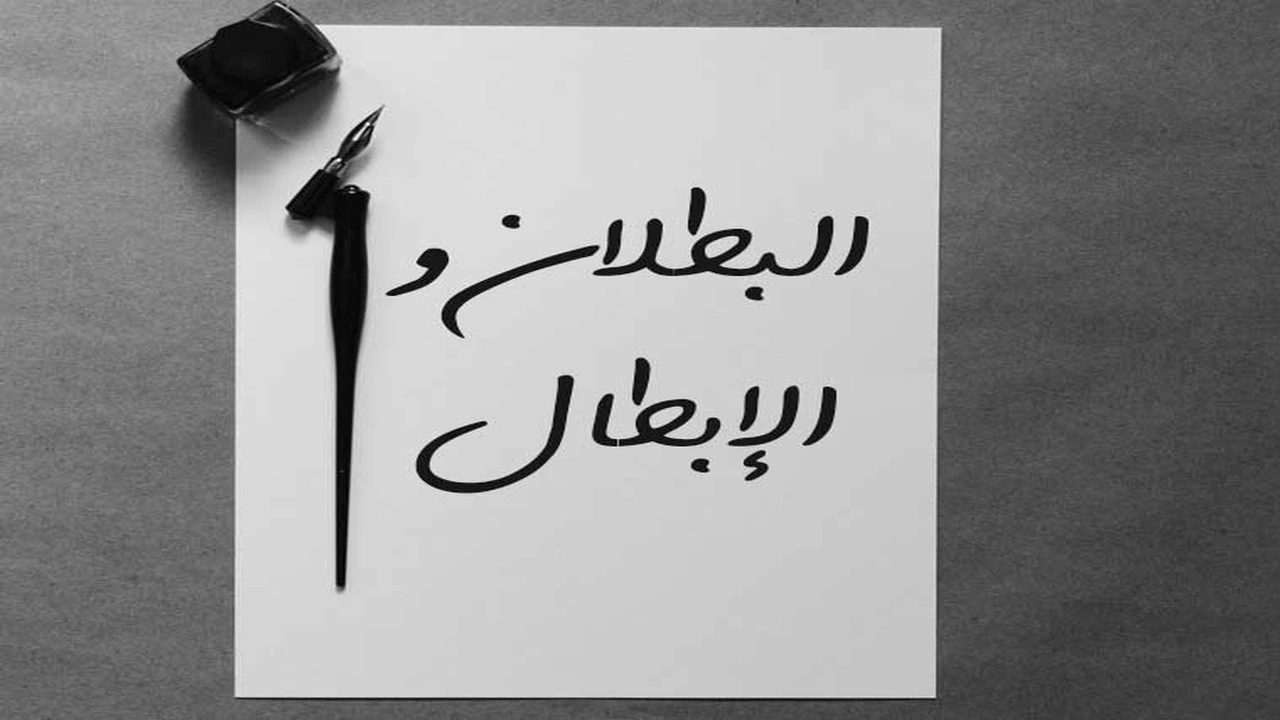 البطلان و
الإبطال